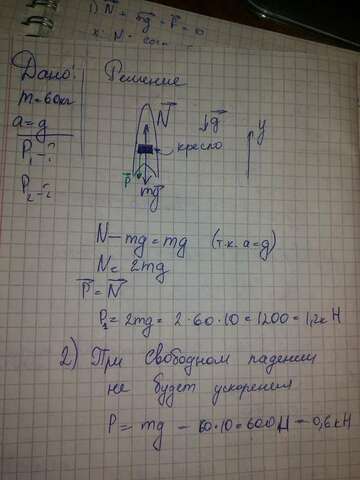 1) N - mg = P = 0
x: N =
Дано: Решение
m = 60кг
a = g
P₁ - ?
P₂ - ?
N g y
кресло
P
mg
N - mg = mg (т.к. a = g)
N = 2mg
P = N
P₁ = 2mg = 2 · 60 · 10 = 1200 = 1,2 кН
2) При свободном падении
не будет ускорения
P = mg - 60 · 10 = 600 Н - 0,6 кН